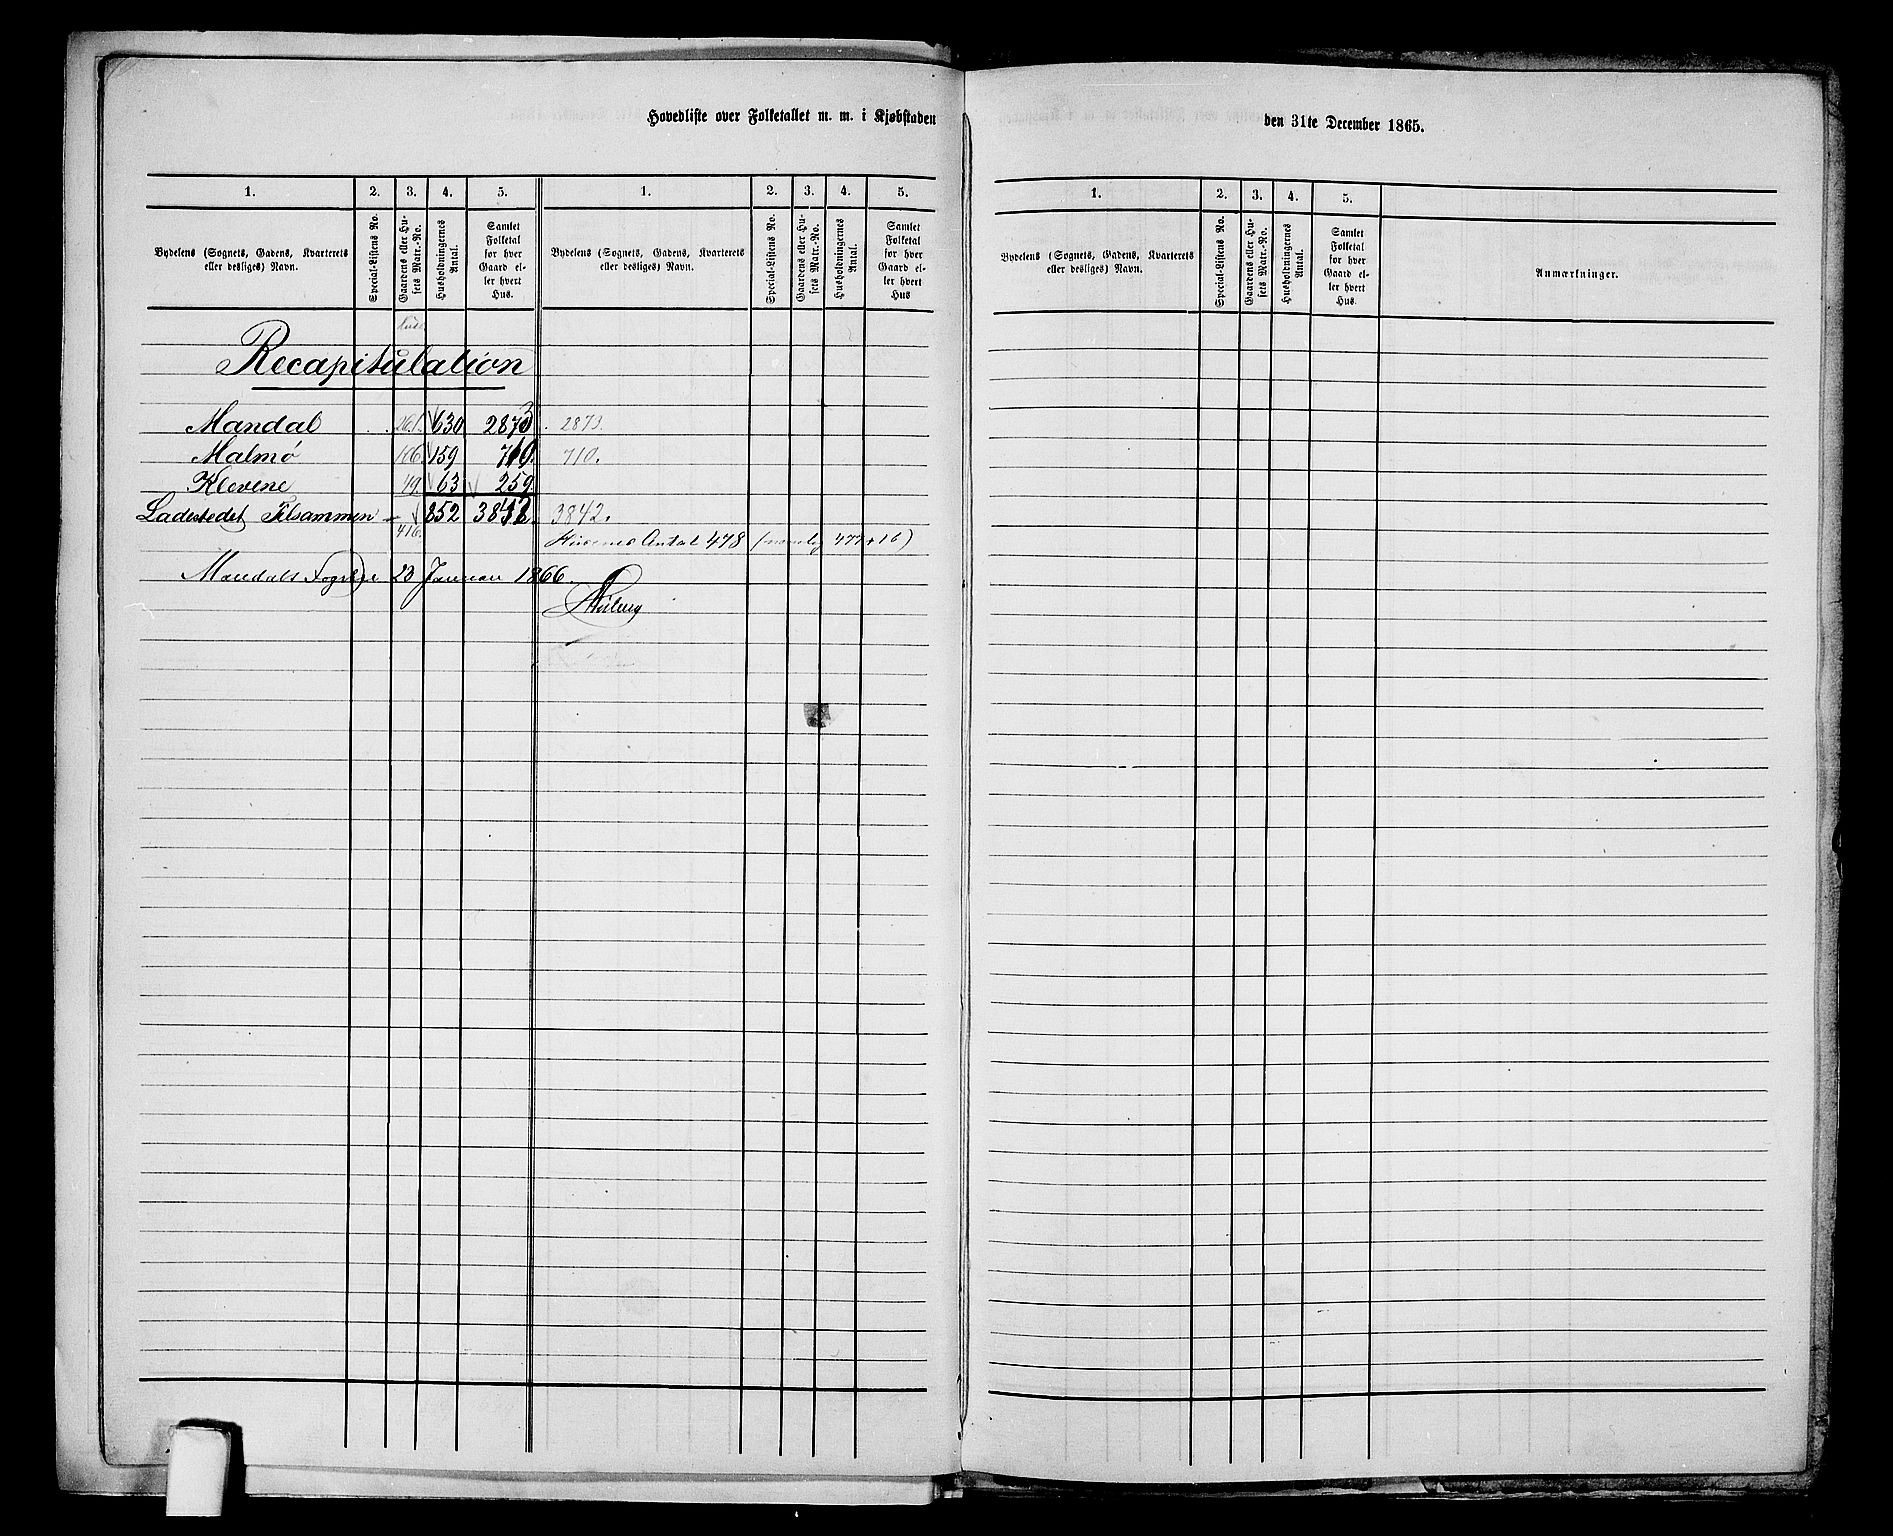 Hovedliste over Folketallet m. m. i Kjøbstaden den 31te December 1865.
1. 2. 3. 4. 5. 1. 2. 3. 4. 5.
Bydelens (Sognets, Gadens, Kvarterets eller desliges) Navn.
Special-Listens No.
Gaardens eller Husets Matr.-No.
Husholdningernes Antal.
Samlet Folketal for hver Gaard eller hvert Hus.
Bydelens (Sognets, Gadens, Kvarterets eller desliges) Navn.
Special-Listens No.
Gaardens eller Husets Matr.-No.
Husholdningernes Antal.
Samlet Folketal for hver Gaard eller hvert Hus
Recapitulation
Mandal 261. 630 2873 2873.
Malmø 106. 159 710. 710.
Klevene 49. 63 259.
Ladestedet Tilsammen 852 3842. 3842.
416.
Husenes Antal 478
Mandals Fogderi 23 Januar 1866.
1. 2. 3. 4. 5.
Bydelens (Sognets, Gadens, Kvarterets eller desliges) Navn.
Special-Listens No.
Gaardens eller Husets Matr.-No.
Husholdningernes Antal.
Samlet Folketal for hver Gaard eller hvert Hus.
Anmærkninger.